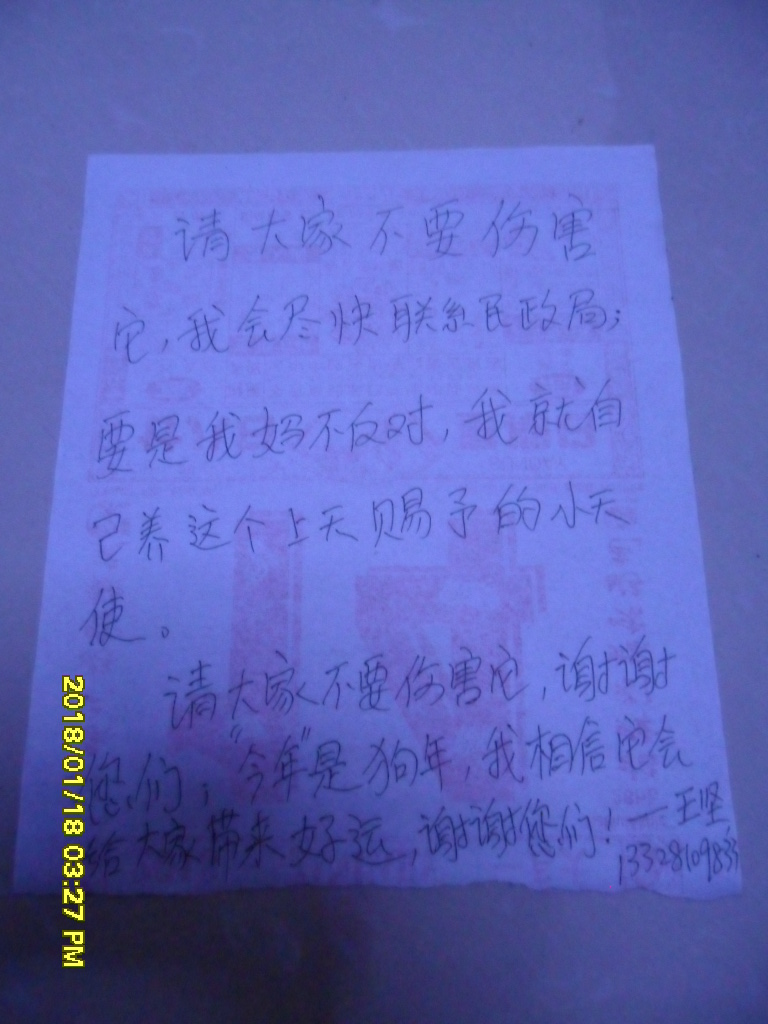 请大家不要伤害
它，我会尽快联系民政局；
要是我妈不反对，我就自
己养这个上天赐予的小天
使。
请大家不要伤害它，谢谢
您们；“今年”是狗年，我相信它会
给大家带来好运，谢谢您们！—王坚
2018/01/18 03:27 PM